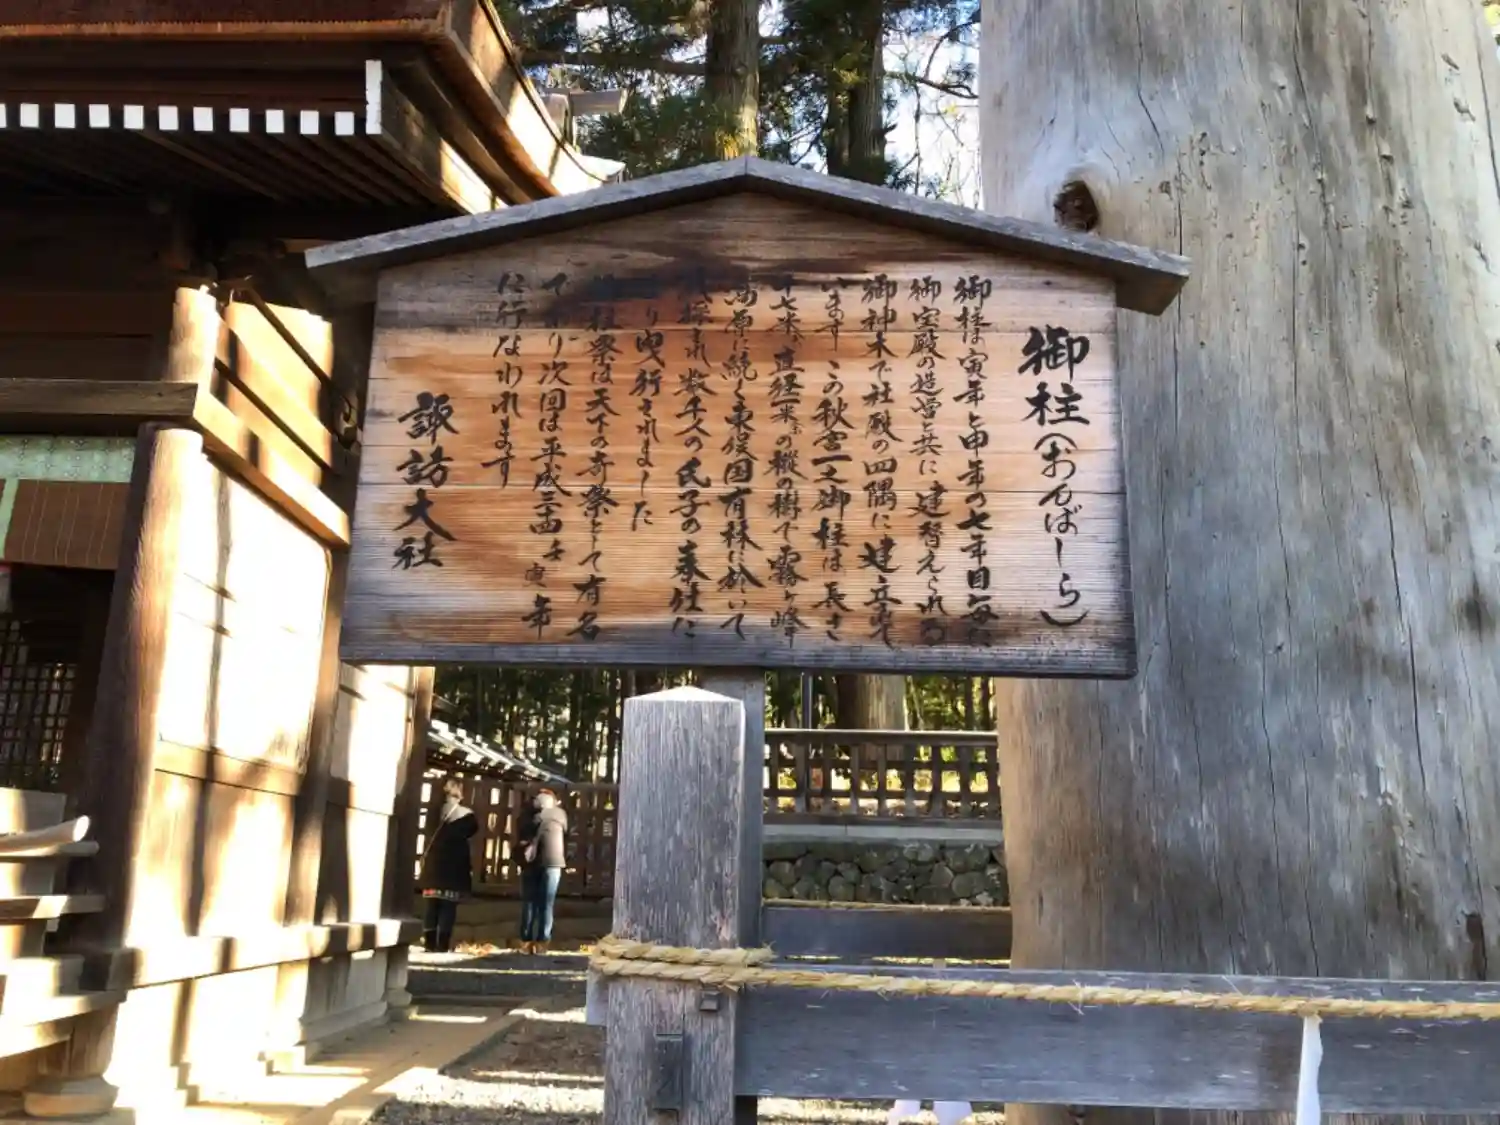 御柱(おんばしら)
御柱は寅年と申年の七年目毎に
御宝殿の造営と共に建替えられる
御神木で社殿の四隅に建立されて
います この秋宮一之御柱は長さ
十七米、直径一米の樅の樹で霧ヶ峰
高原に続く東俣国有林に於いて
伐採され数千人の氏子の奉仕に
より曳行されました
御柱祭は天下の奇祭として有名
で 次回は平成三四壬寅年
に行なわれます
諏訪大社